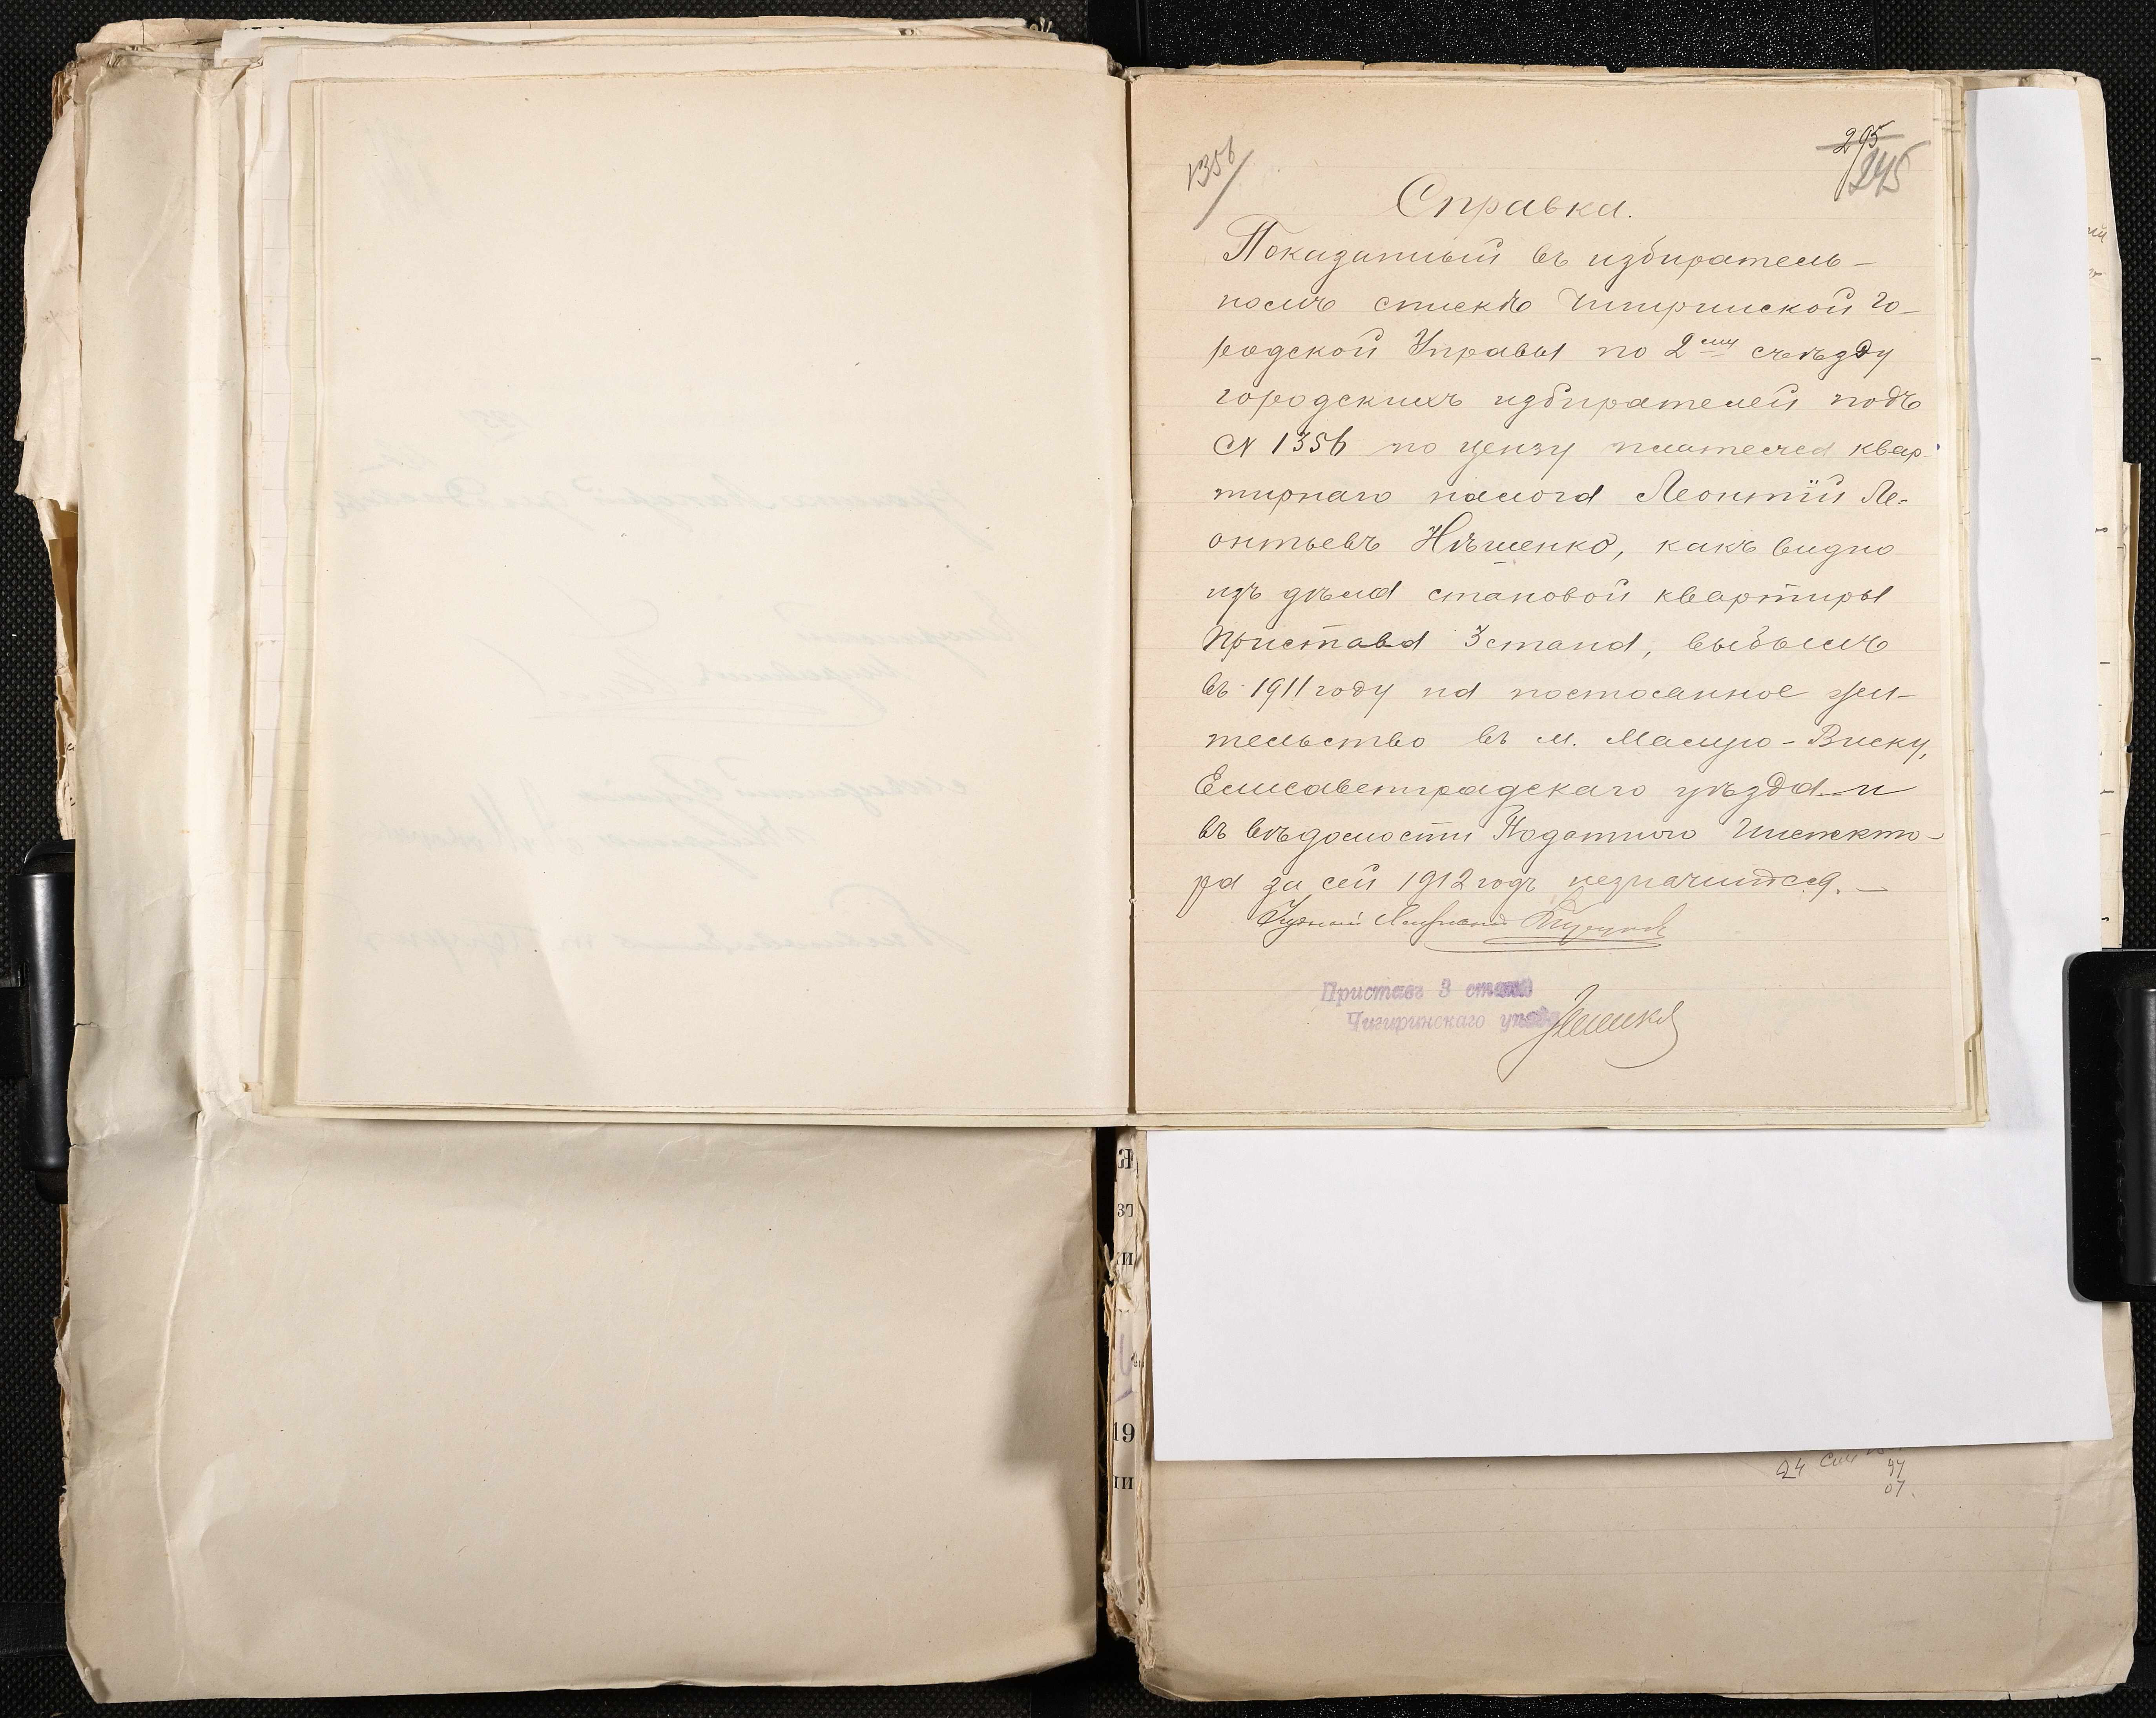 1356
295
245
Справка.
Показанный въ избиратель-
номъ спискѣ Чигиринской Го-
родской Управы по 2ому съѣзду
городскихъ избирателей подъ
№ 1356 по цензу платежа квар-
тирнаго налога Леонтій Ле-
онтьевъ Нѣшенко, какъ видно
изъ дѣла становой квартиры
Пристава 3 стана, выбылъ
въ 1911 году на постоянное жи-
тельство въ м. Малую-Виску,
Елисаветградскаго уѣзда и
въ вѣдомости Податного Инспекто-
ра за сей 1912 годъ незначится.
Приставъ 3 стана
Чигиринскаго уѣзда
19
24
97
07.